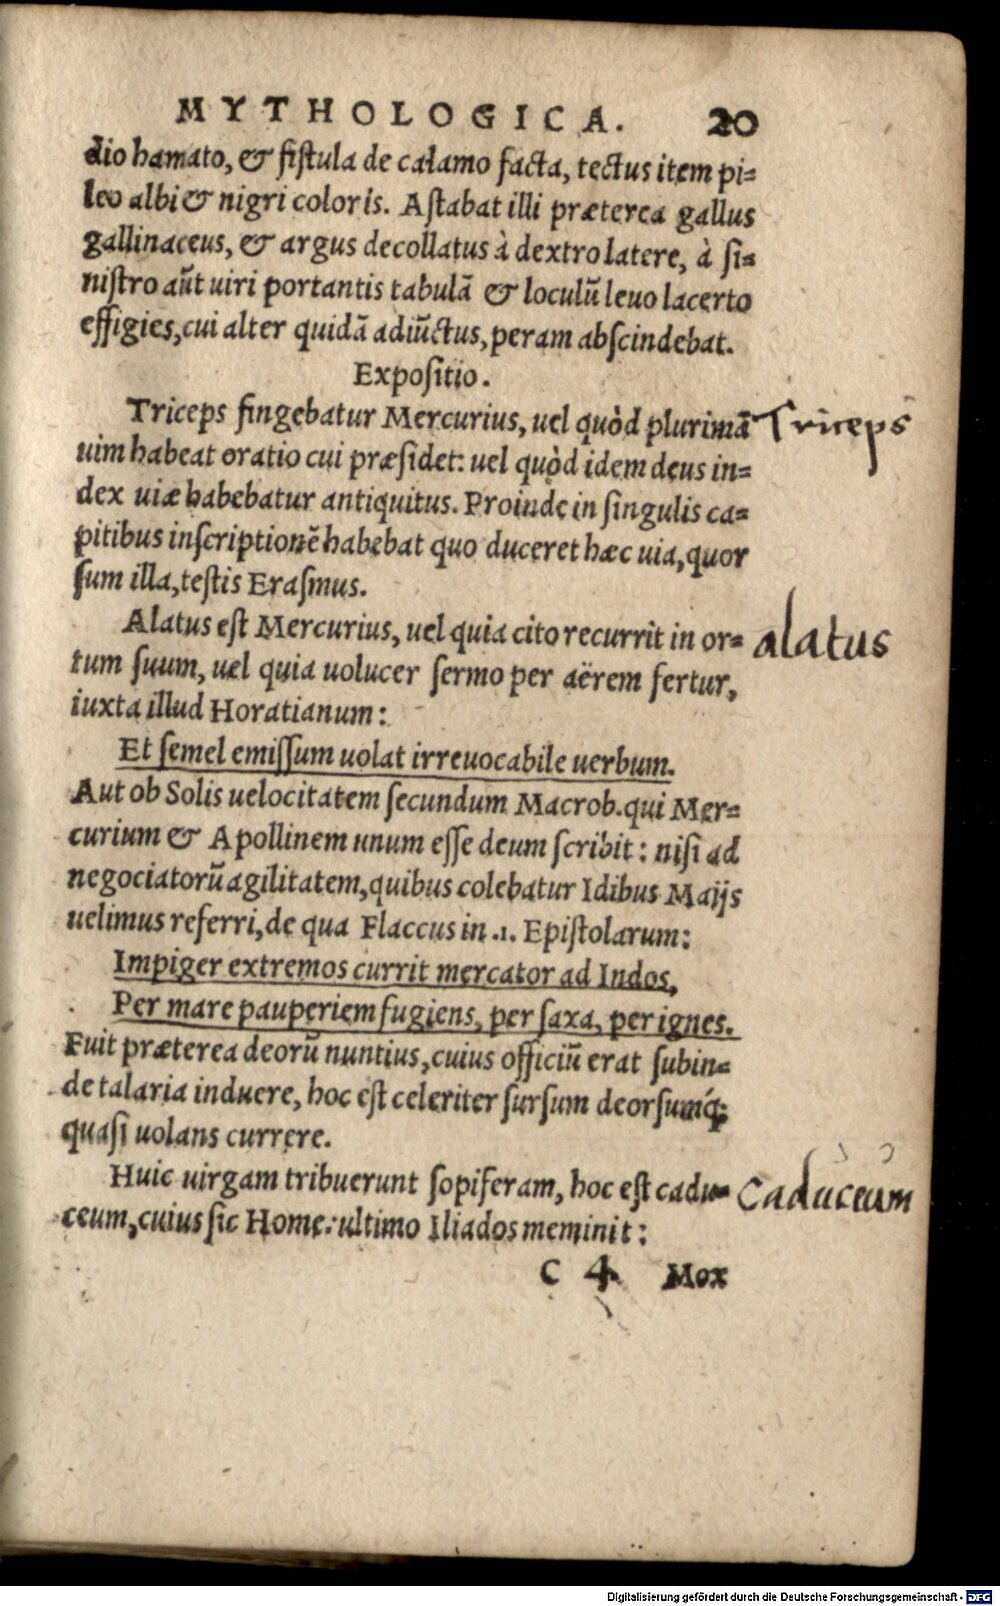 MYTHOLOGICA. 20
dio hamato, & fistula de calamo facta, tectus item pi=
leo albi & nigri coloris. Astabat illi præterea gallus
gallinaceus, & argus decollatus à dextro latere, à si=
nistro aūt uiri portantis tabulā & loculū leuo lacerto
effigies, cui alter quidā adiūctus, peram abscindebat.
Expositio.
Triceps fingebatur Mercurius, uel quòd plurimā Triceps
uim habeat oratio cui præsidet: uel quòd idem deus in=
dex uiæ habebatur antiquitus. Proinde in singulis ca=
pitibus inscriptionē habebat quo duceret hæc uia, quor
sum illa, testis Erasmus.
Alatus est Mercurius, uel quia cito recurrit in or= alatus
tum suum, uel quia uolucer sermo per aërem fertur,
iuxta illud Horatianum:
Et semel emissum uolat irreuocabile uerbum.
Aut ob Solis uelocitatem secundum Macrob. qui Mer=
curium & Apollinem unum esse deum scribit: nisi ad
negociatorū agilitatem, quibus colebatur Idibus Maijs
uelimus referri, de qua Flaccus in .1. Epistolarum:
Impiger extremos currit mercator ad Indos,
Per mare pauperiem fugiens, per saxa, per ignes.
Fuit præterea deorū nuntius, cuius officiū erat subin=
de talaria induere, hoc est celeriter sursum deorsumq́;
quasi uolans currere.
Huic uirgam tribuerunt sopiferam, hoc est cadu= Caduceum
ceum, cuius sic Home. ultimo Iliados meminit:
C 4 Mox
Digitalisierung gefördert durch die Deutsche Forschungsgemeinschaft - DFG